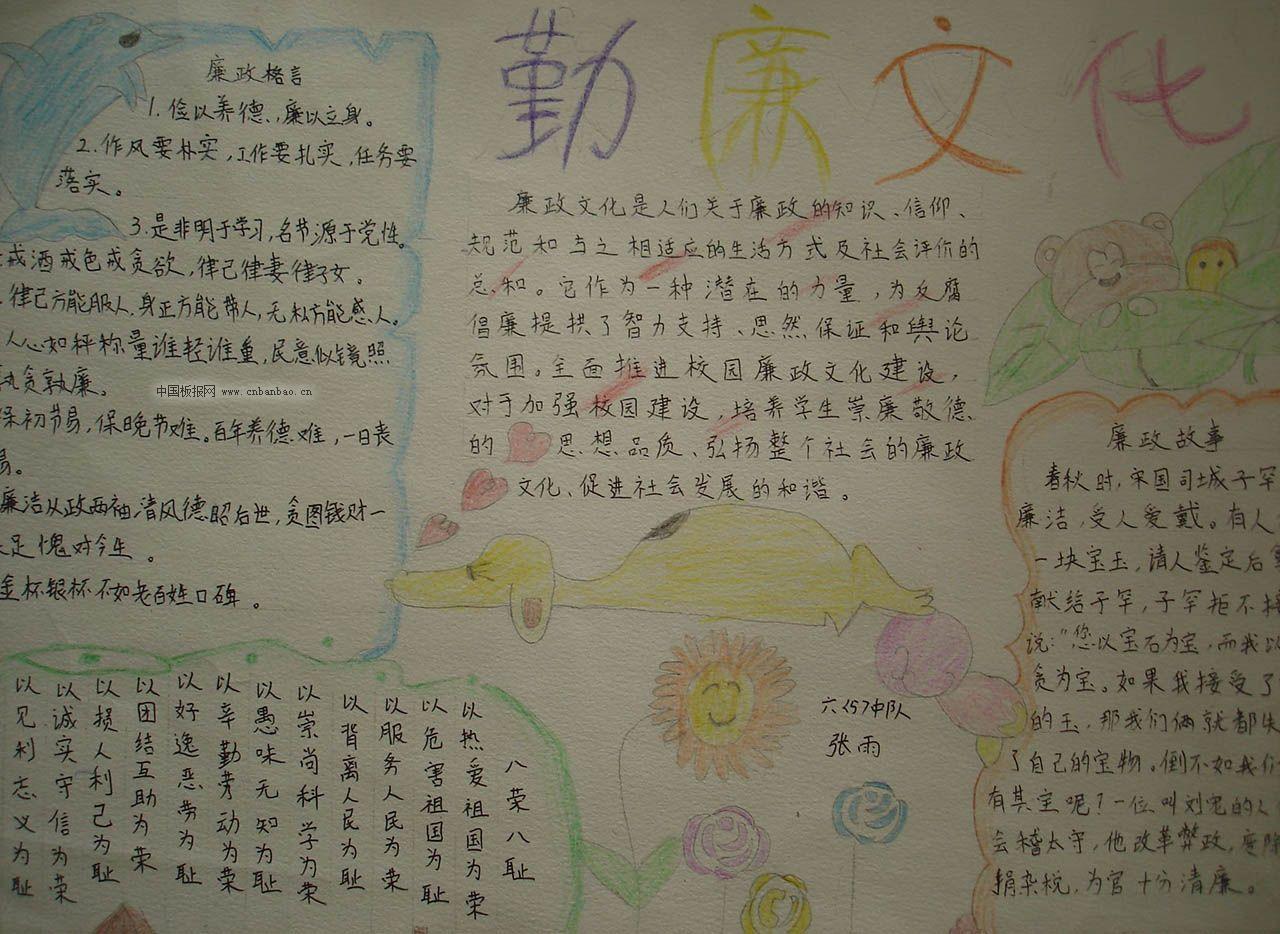 勤廉文化
廉政格言
1. 俭以养德，廉以立身。
2. 作风要朴实，工作要扎实，任务要
落实。
3. 是非明于学习，名节源于党性。
戒酒戒色戒贪欲，律己律妻律子女。
律己方能服人，身正方能带人，无私方能感人。
人心如秤称量谁轻谁重，民意似镜照
孰贪孰廉。
中国板报网 www.cnbanbao.cn
保初节易，保晚节难。百年养德难，一日丧
易。
廉洁从政两袖清风德昭后世，贪图钱财一
足愧对今生。
金杯银杯不如老百姓口碑。
廉政文化是人们关于廉政的知识、信仰、
规范和与之相适应的生活方式及社会评价的
总和。它作为一种潜在的力量，为反腐
倡廉提拱了智力支持、思然保证和舆论
氛围。全面推进校园廉政文化建设，
对于加强校园建设，培养学生崇廉敬德
的思想品质、弘扬整个社会的廉政
文化、促进社会发展的和谐。
廉政故事
春秋时，宋国司城子罕
廉洁，受人爱戴。有人
一块宝玉，请人鉴定后
献给子罕，子罕拒不
说："您以宝石为宝，而我以
贪为宝。如果我接受了
的玉，那我们俩就都失
了自己的宝物。倒不如我们
有其宝呢？一位叫刘宠的人
会稽太守，他改革弊政，废除
捐杂税，为官十分清廉。
八荣八耻
以热爱祖国为荣
以危害祖国为耻
以服务人民为荣
以背离人民为耻
以崇尚科学为荣
以愚味无知为耻
以辛勤劳动为荣
以好逸恶劳为耻
以团结互助为荣
以损人利己为耻
以诚实守信为荣
以见利忘义为耻
六(5)中队
张雨